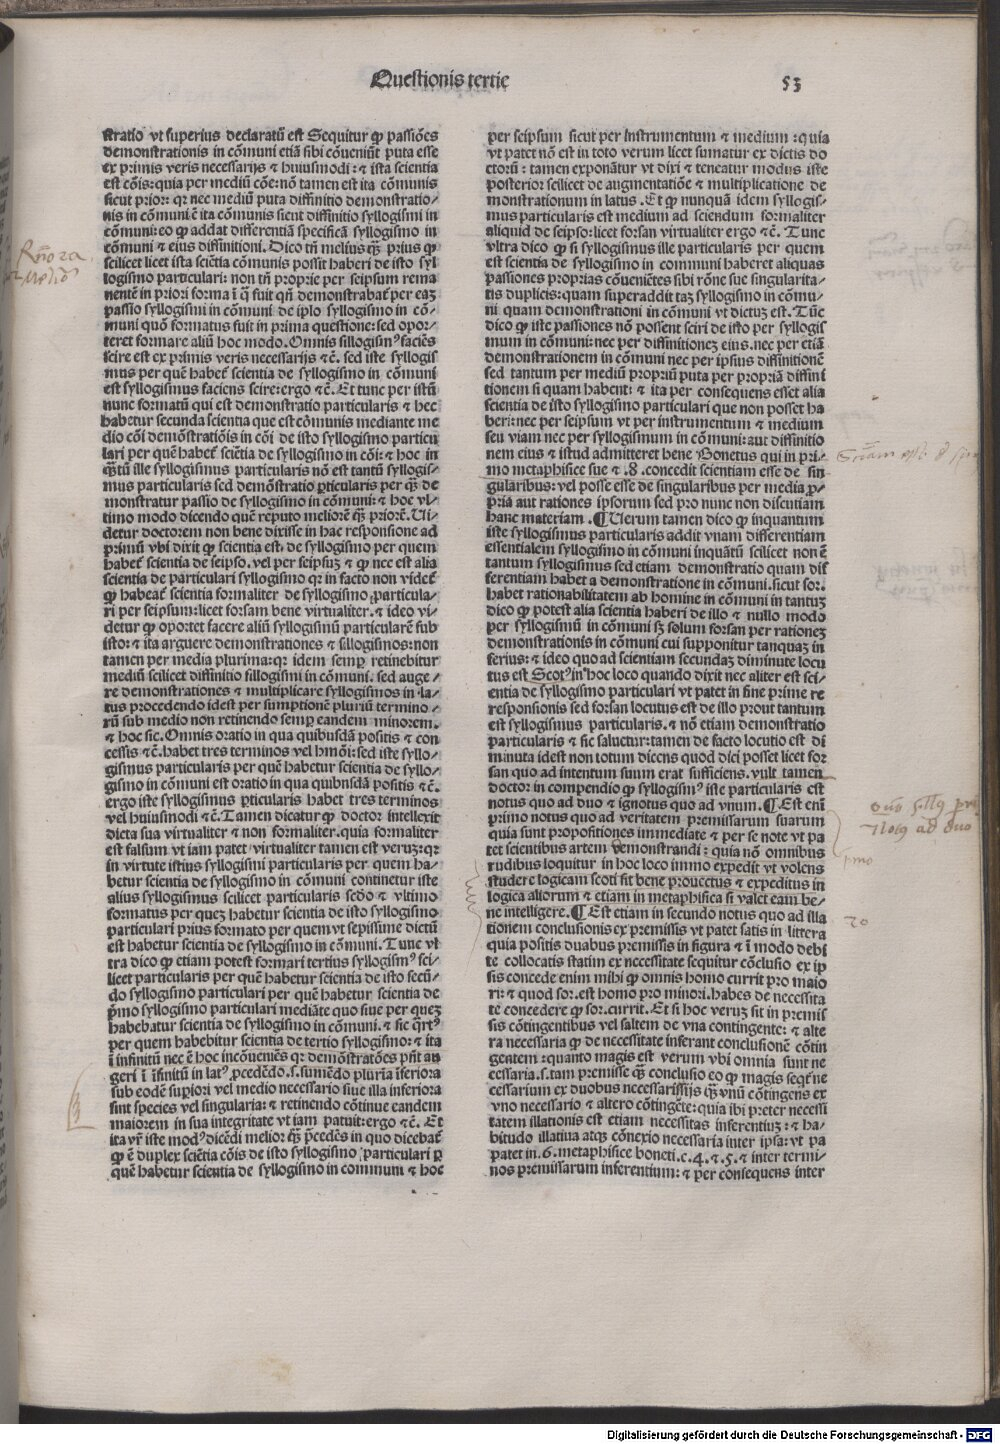 Questionis tertie
53
stratio vt superius declaratū est Sequitur ꝙ passiões
demonstrationis in cōmuni etiā sibi cōueniūt puta esse
ex primis veris necessarijs ⁊ huiusmodi: ⁊ ista scientia
est cōis: quia per mediū cōe: nō tamen est ita cōmunis
sicut prior: qr nec mediū puta diffinitio demonstratio-
nis in cōmuni ē ita cōmunis sicut diffinitio syllogismi in
cōmuni: eo ꝙ addat differentiā specificā syllogismo in
cōmuni ⁊ eius diffinitioni. Dico tñ melius qᷓ prius ꝙ
scilicet licet ista sciētia cōmunis possit haberi de isto syl
logismo particulari: non tñ proprie per seipsum rema
nentē in priori forma ī q̄ fuit qñ demonstrabat̄ per eaꝫ
passio syllogismi in cōmuni de ipso syllogismo in cō-
muni quō formatus fuit in prima questione: sed opor-
teret formare aliū hoc modo. Omnis sillogismꝰ faciēs
scire est ex primis veris necessarijs ⁊c̄. sed iste syllogis
mus per quē habet̄ scientia de syllogismo in cōmuni
est syllogismus faciens scire: ergo ⁊c̄. Et tunc per istū
nunc formatū qui est demonstratio particularis ⁊ hec
habetur secunda scientia que est cōmunis mediante me
dio cōi demōstratiōis in cōi de isto syllogismo particu
lari per quē habet̄ sciētia de syllogismo in cōi: ⁊ hoc in
qᷓtū ille syllogismus particularis nō est tantū syllogis-
mus particularis sed demōstratio ꝑticularis per qᷓ de
monstratur passio de syllogismo in cōmuni: ⁊ hoc vl-
timo modo dicendo quē reputo meliorē qᷓ priorē. Ui-
detur doctorem non bene dixisse in hac responsione ad
primū vbi dixit ꝙ scientia est, de syllogismo per quem
habet̄ scientia de seipso. vel per seipsuꝫ ⁊ ꝙ nec est alia
scientia de particulari syllogismo qr in facto non videt̄
ꝙ habeat̄ scientia formaliter de syllogismo particula-
ri per seipsum: licet forsam bene virtualiter. ⁊ ideo vi-
detur ꝙ oportet facere aliū syllogismū particularē sub
isto: ⁊ ita arguere demonstrationes ⁊ sillogismos: non
tamen per media plurima: qr idem semꝑ retinebitur
mediū scilicet diffinitio sillogismi in cōmuni. sed auge-
re demonstrationes ⁊ multiplicare syllogismos in la-
tus procedendo idest per sumptionē pluriū termino-
rū sub medio non retinendo semꝑ eandem minorem.
⁊ hoc sic. Omnis oratio in qua quibusdā positis ⁊ con
cessis ⁊c̄. habet tres terminos vel hmōi: sed iste syllo-
gismus particularis per quē habetur scientia de syllo-
gismo in cōmuni est oratio in qua quibusdā positis ⁊c̄.
ergo iste syllogismus ꝑticularis habet tres terminos
vel huiusmodi ⁊c̄. Tamen dicatur ꝙ doctor intellexit
dicta sua virtualiter ⁊ non formaliter. quia formaliter
est falsum vt iam patet virtualiter tamen est veruꝫ: qr
in virtute istius syllogismi particularis per quem ha-
betur scientia de syllogismo in cōmuni continetur iste
alius syllogismus scilicet particularis sedo ⁊ vltimo
formatus per queꝫ habetur scientia de isto syllogismo
particulari prius formato per quem vt sepissime dictū
est habetur scientia de syllogismo in cōmuni. Tunc vl
tra dico ꝙ etiam potest formari tertius syllogismꝰ sci-
licet particularis per quē habetur scientia de isto secū-
do syllogismo particulari per quē habetur scientia de
pᷓmo syllogismo particulari mediāte quo siue per queꝫ
habebatur scientia de syllogismo in cōmuni. ⁊ sic qᷓrtꝰ
per quem habebitur scientia de tertio syllogismo: ⁊ ita
ī infinitū nec ē hoc incōueniēs qr demōstratōes pn̄t au
geri ī īfinitū in latꝰ ꝓcedēdo .s. sumēdo plurīa īferiora
sub eodē superiori vel medio necessario siue illa inferiora
sint species vel singularia: ⁊ retinendo cōtinue eandem
maiorem in sua integritate vt iam patuit: ergo ⁊c̄. Et
ita vr̄ iste modꝰ dicēdi melior qᷓ p̄cedēs in quo dicebat̄
ꝙ ē duplex sciētia cōis de isto syllogismo particulari ꝑ
quē habetur scientia de syllogismo in communi ⁊ hoc
per seipsum sicut per instrumentum ⁊ medium: quia
vt patet nō est in toto verum licet sumatur ex dictis do
ctorū: tamen exponātur vt dixi ⁊ teneatur modus iste
posterior scilicet de augmentatiōe ⁊ multiplicatione de
monstrationum in latus. Et ꝙ nunquā idem syllogis-
mus particularis est medium ad sciendum formaliter
aliquid de seipso: licet forsan virtualiter ergo ⁊c̄. Tunc
vltra dico ꝙ si syllogismus ille particularis per quem
est scientia de syllogismo in communi haberet aliquas
passiones proprias cōueniētes sibi rōne sue singularita-
tis duplicis: quam superaddit taꝫ syllogismo in cōmu-
ni quam demonstrationi in cōmuni vt dictuꝫ est. Tūc
dico ꝙ iste passiones nō possent sciri de isto per syllogis
mum in cōmuni: nec per diffinitioneꝫ eius. nec per etiā
demonstrationem in cōmuni nec per ipsius diffinitionē
sed tantum per mediū propriū puta per propriā diffini
tionem si quam habent: ⁊ ita per consequens esset alia
scientia de isto syllogismo particulari que non posset ha
beri: nec per seipsum vt per instrumentum ⁊ medium
seu viam nec per syllogismum in cōmuni: aut diffinitio
nem eius ⁊ istud admitteret bene Bonetus qui in pri-
mo metaphisice sue ⁊ .8. concedit scientiam esse de sin
gularibus: vel posse esse de singularibus per media ꝓ-
pria aut rationes ipsorum sed pro nunc non discutiam
hanc materiam. ¶ Uerum tamen dico ꝙ inquantum
iste syllogismus particularis addit vnam differentiam
essentialem syllogismo in cōmuni inquātū scilicet non ē
tantum syllogismus sed etiam demonstratio quam dif
ferentiam habet a demonstratione in cōmuni. sicut sor.
habet rationabilitatem ab homine in cōmuni in tantuꝫ
dico ꝙ potest alia scientia haberi de illo ⁊ nullo modo
per syllogismū in cōmuni sꝫ solum forsan per rationeꝫ
demonstrationis in cōmuni cui supponitur tanquaꝫ in
ferius: ⁊ ideo quo ad scientiam secundaꝫ diminute locu
tus est Scotꝰ in hoc loco quando dixit nec aliter est sci-
entia de syllogismo particulari vt patet in fine prime re
responsionis sed forsan locutus est de illo prout tantum
est syllogismus particularis. ⁊ nō etiam demonstratio
particularis ⁊ sic saluetur: tamen de facto locutio est di
minuta idest non totum dicens quod dici posset licet for
san quo ad intentum suum erat sufficiens. vult tamen
doctor in compendio ꝙ syllogismꝰ iste particularis est
notus quo ad duo ⁊ ignotus quo ad vnum. ¶ Est enī
primo notus quo ad veritatem premissarum suarum
quia sunt propositiones immediate ⁊ per se note vt pa
tet scientibus artem demonstrandi: quia nō omnibus
rudibus loquitur in hoc loco immo expedit vt volens
studere logicam scoti sit bene prouectus ⁊ expeditus in
logica aliorum ⁊ etiam in metaphisica si valet eam be-
ne intelligere. ¶ Est etiam in secundo notus quo ad illa
tionem conclusionis ex premissis vt patet satis in littera
quia positis duabus premissis in figura ⁊ ī modo debi
te collocatis statim ex necessitate sequitur cōclusio ex ip
sis concede enim mihi ꝙ omnis homo currit pro maio
ri: ⁊ quod sor. est homo pro minori. habes de necessita
te concedere ꝙ sor. currit. Et si hoc veruꝫ sit in premis
sis cōtingentibus vel saltem de vna contingente: ⁊ alte
ra necessaria ꝙ de necessitate inferant conclusionē cōtin
gentem: quanto magis est verum vbi omnia sunt ne
cessaria .s. tam premisse qᷓ conclusio eo ꝙ magis seqt̄ ne
cessarium ex duobus necessarissijs qᷓ vnū cōtingens ex
vno necessario ⁊ altero cōtingēte: quia ibi preter necessi
tatem illationis est etiam necessitas inferentiuꝫ: ⁊ ha-
bitudo illatiua atqꝫ cōnexio necessaria inter ipsa: vt pa
patet in .6. metaphisice boneti .c. 4. ⁊ .5. ⁊ inter termi-
nos premissarum inferentium: ⁊ per consequens inter
2o
Digitalisierung gefördert durch die Deutsche Forschungsgemeinschaft - DFG